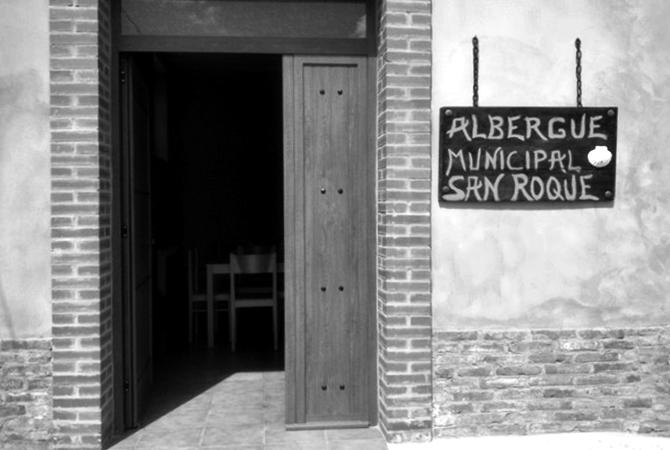 ALBERGUE
MUNICIPAL
SAN ROQUE